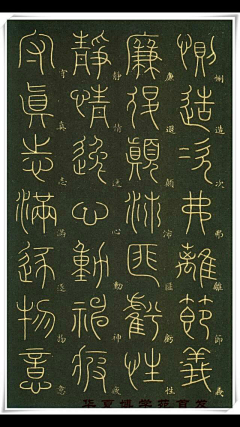 惻造次弗離節義
廉退顛沛匪虧性
靜情逸心動神疲
守眞志滿逐物意